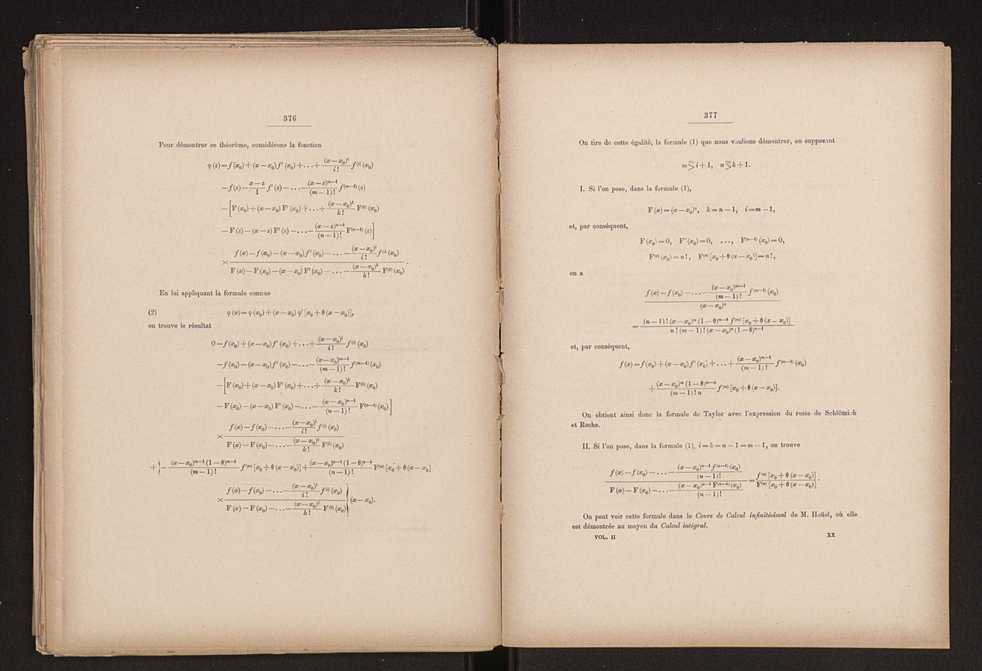 376
Pour démontrer ce théorème, considérons la fonction
φ(z)=f(x₀)+(x−x₀)f′(x₀)+...+(x−x₀)ⁱ/i! f⁽ⁱ⁾(x₀)
−f(z)−(x−z)/1 f′(z)−...−(x−z)ᵐ⁻¹/(m−1)! f⁽ᵐ⁻¹⁾(z)
−[F(x₀)+(x−x₀)F′(x₀)+...+(x−x₀)ᵏ/k! F⁽ᵏ⁾(x₀)
−F(z)−(x−z)F′(z)−...−(x−z)ⁿ⁻¹/(n−1)! F⁽ⁿ⁻¹⁾(z)]
×(f(x)−f(x₀)−(x−x₀)f′(x₀)−...−(x−x₀)ⁱ/i! f⁽ⁱ⁾(x₀))/(F(x)−F(x₀)−(x−x₀)F′(x₀)−...−(x−x₀)ᵏ/k! F⁽ᵏ⁾(x₀)).
En lui appliquant la formule connue
(2) φ(x)=φ(x₀)+(x−x₀)φ′[x₀+θ(x−x₀)],
on trouve le résultat
0=f(x₀)+(x−x₀)f′(x₀)+...+(x−x₀)ⁱ/i! f⁽ⁱ⁾(x₀)
−f(x₀)−(x−x₀)f′(x₀)−...−(x−x₀)ᵐ⁻¹/(m−1)! f⁽ᵐ⁻¹⁾(x₀)
−[F(x₀)+(x−x₀)F′(x₀)+...+(x−x₀)ᵏ/k! F⁽ᵏ⁾(x₀)
−F(x₀)−(x−x₀)F′(x₀)−...−(x−x₀)ⁿ⁻¹/(n−1)! F⁽ⁿ⁻¹⁾(x₀)]
×(f(x)−f(x₀)−...−(x−x₀)ⁱ/i! f⁽ⁱ⁾(x₀))/(F(x)−F(x₀)−...−(x−x₀)ᵏ/k! F⁽ᵏ⁾(x₀))
+{−(x−x₀)ᵐ⁻¹(1−θ)ᵐ⁻¹/(m−1)! f⁽ᵐ⁾[x₀+θ(x−x₀)]+(x−x₀)ⁿ⁻¹(1−θ)ⁿ⁻¹/(n−1)! F⁽ⁿ⁾[x₀+θ(x−x₀]
×(f(x)−f(x₀)−...−(x−x₀)ⁱ/i! f⁽ⁱ⁾(x₀))/(F(x)−F(x₀)−...−(x−x₀)ᵏ/k! F⁽ᵏ⁾(x₀))}(x−x₀).
377
On tire de cette égalité, la formule (1) que nous voulions démontrer, en supposant
m≧i+1, n≧k+1.
I. Si l'on pose, dans la formule (1),
F(x)=(x−x₀)ⁿ, k=n−1, i=m−1,
et, par conséquent,
F(x₀)=0, F′(x₀)=0, ..., F⁽ⁿ⁻¹⁾(x₀)=0,
F⁽ⁿ⁾(x₀)=n!, F⁽ⁿ⁾[x₀+θ(x−x₀)]=n!,
on a
(f(x)−f(x₀)−...−(x−x₀)ᵐ⁻¹/(m−1)! f⁽ᵐ⁻¹⁾(x₀))/(x−x₀)ⁿ
=(n−1)!(x−x₀)ᵐ(1−θ)ᵐ⁻¹f⁽ᵐ⁾[x₀+θ(x−x₀)]/n!(m−1)!(x−x₀)ⁿ(1−θ)ⁿ⁻¹
et, par conséquent,
f(x)=f(x₀)+(x−x₀)f′(x₀)+...+(x−x₀)ᵐ⁻¹/(m−1)! f⁽ᵐ⁻¹⁾(x₀)
+(x−x₀)ᵐ(1−θ)ᵐ⁻ⁿ/(m−1)!n f⁽ᵐ⁾[x₀+θ(x−x₀)].
On obtient ainsi donc la formule de Taylor avec l'expression du reste de Schlömilch
et Roche.
II. Si l'on pose, dans la formule (1), i=k=n−1=m−1, on trouve
(f(x)−f(x₀)−...−(x−x₀)ⁿ⁻¹f⁽ⁿ⁻¹⁾(x₀)/(n−1)!)/(F(x)−F(x₀)−...−(x−x₀)ⁿ⁻¹F⁽ⁿ⁻¹⁾(x₀)/(n−1)!)=f⁽ⁿ⁾[x₀+θ(x−x₀)]/F⁽ⁿ⁾[x₀+θ(x−x₀)].
On peut voir cette formule dans le Cours de Calcul infinitésimal de M. Hoüel, où elle
est démontrée au moyen du Calcul intégral.
VOL. II XX